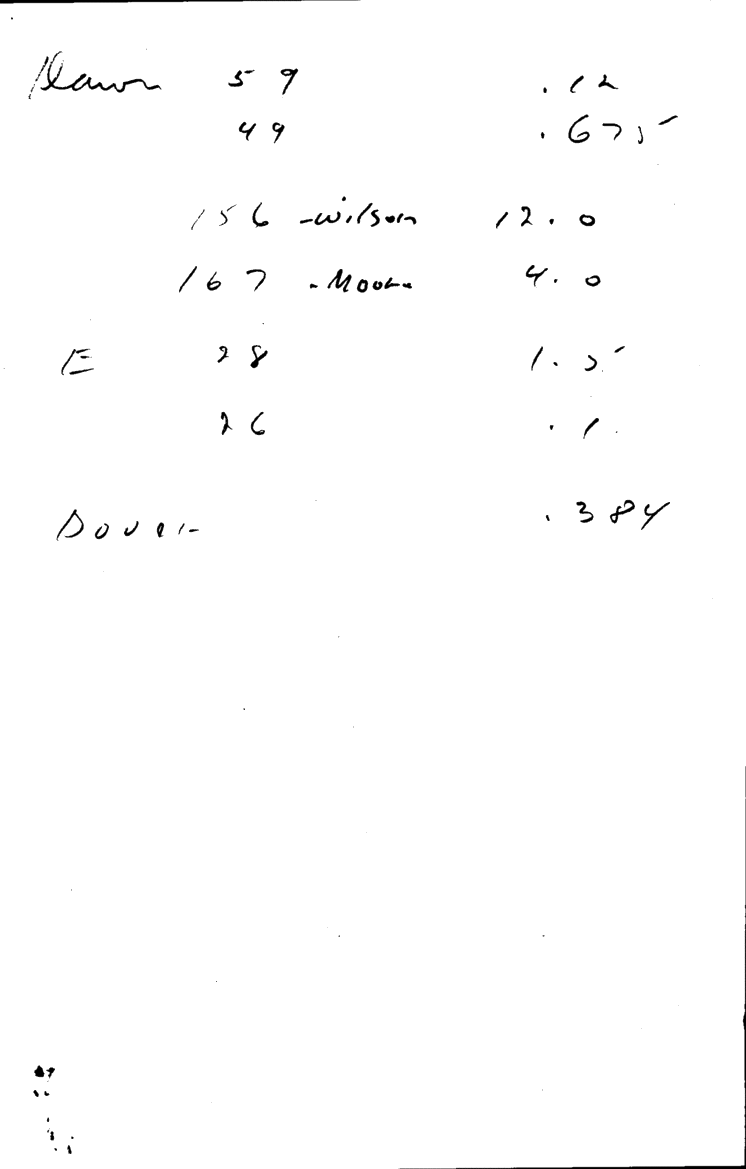 Dawn 59 .12
49 .675
156 -Wilson 12.0
167 -Moore 4.0
E 28 1.5
26 .1
Dover .384